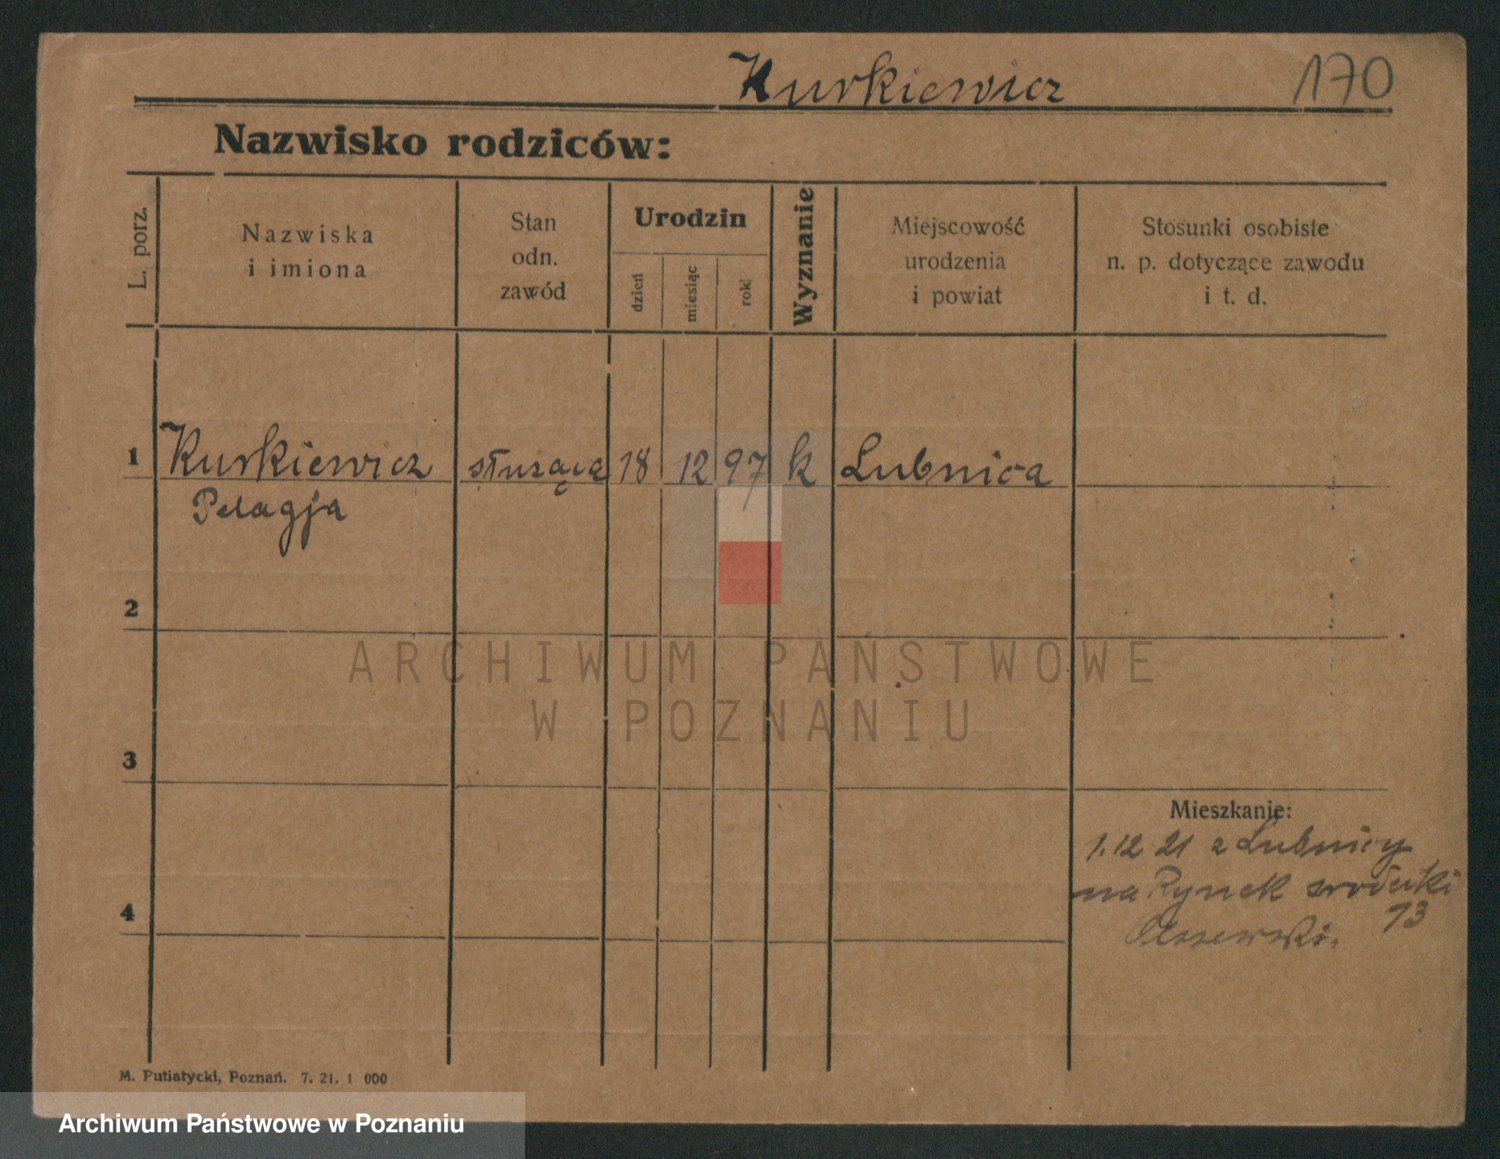 Kurkiewicz 170
Nazwisko rodziców:
L. porz.
Nazwiska
i imiona
Stan
odn.
zawód
Urodzin
dzień
miesiąc
rok
Wyznanie
Miejscowość
urodzenia
i powiat
Stosunki osobiste
n. p. dotyczące zawodu
i t. d.
1 Kurkiewicz służąca 18 12 97 k Lubnica
Pelagja
2
ARCHIWUM PAŃSTWOWE
W POZNANIU
3
Mieszkanie:
1.12 21 z Lubnicy
na Rynek srodecki
13
4
M. Putiatycki, Poznań. 7. 21. 1 000
Archiwum Państwowe w Poznaniu